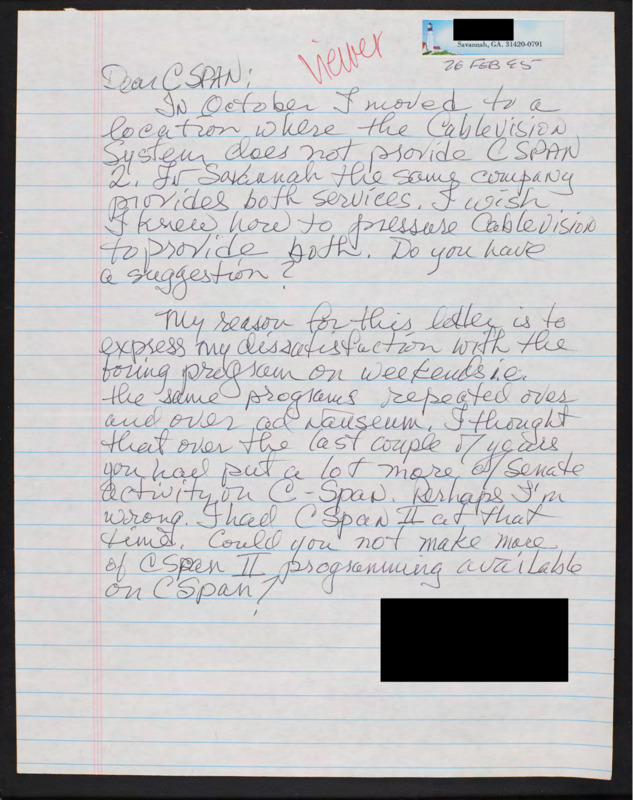 viewer
Savannah, GA. 31420-0791
26 FEB 95
Dear CSPAN:
In October I moved to a
location where the Cablevision
System does not provide CSPAN
2. In Savannah the same company
provides both services. I wish
I knew how to pressure Cablevision
to provide both. Do you have
a suggestion?
My reason for this letter is to
express my dissatisfaction with the
boring program on weekends i.e.
the same programs repeated over
and over ad nauseum. I thought
that over the last couple of years
you had put a lot more of Senate
activity on C-Span. Perhaps I'm
wrong. I had CSpan II at that
time. Could you not make more
of CSpan II programming available
on CSpan?